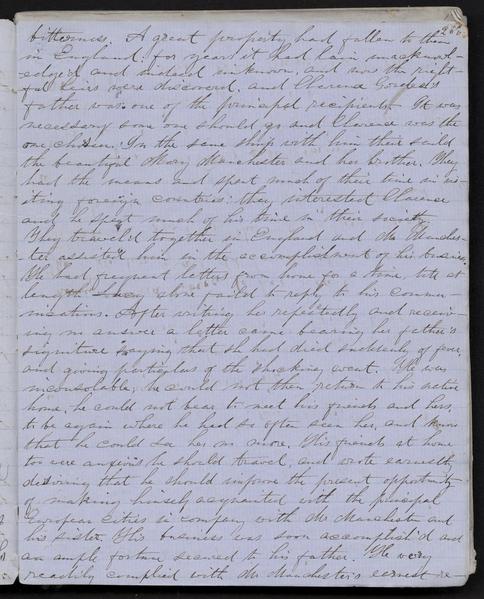 bitterness. A great property had fallen to them
in England: for years it had lain unacknowl-
edged and indeed unknown, and now the right-
ful heirs were discovered, and Clarence
father was one of the principal recipients. It was
necessary some one should go and Clarence was the
one chosen. In the same ship with him there sailed
the beautiful Mary Manchester and her brother. They
had the means and spent much of their time in vis-
iting foreign countries: they interested Clarence
and he spent much of his time in their society
They travel'd together in England and Mr Manches-
ter assisted him in the accomplishment of his business.
He had frequent letters from home for a time, but at
length Lucy alone failed to reply to his commu-
nication. After writing her repeatedly and receiv-
ing no answer a letter came bearing her father's
signiture saying that she had died suddenly of fever,
and giving particulars of the shocking event. He was
inconsolable, he could not then return to his native
home, he could not bear to meet his friends and hers,
to be again where he had so often seen her, and know
that he could see her no more. His friends at home
too were anxious he should travel, and wrote earnestly
desiring that he should improve the present opportunity
of making himself acquainted with the principal
European cities in company with Mr Manchester and
his sister. His business was soon accomplish'd and
an ample fortune secured to his father. He very
readily complied with Mr Manchester's earnest re-